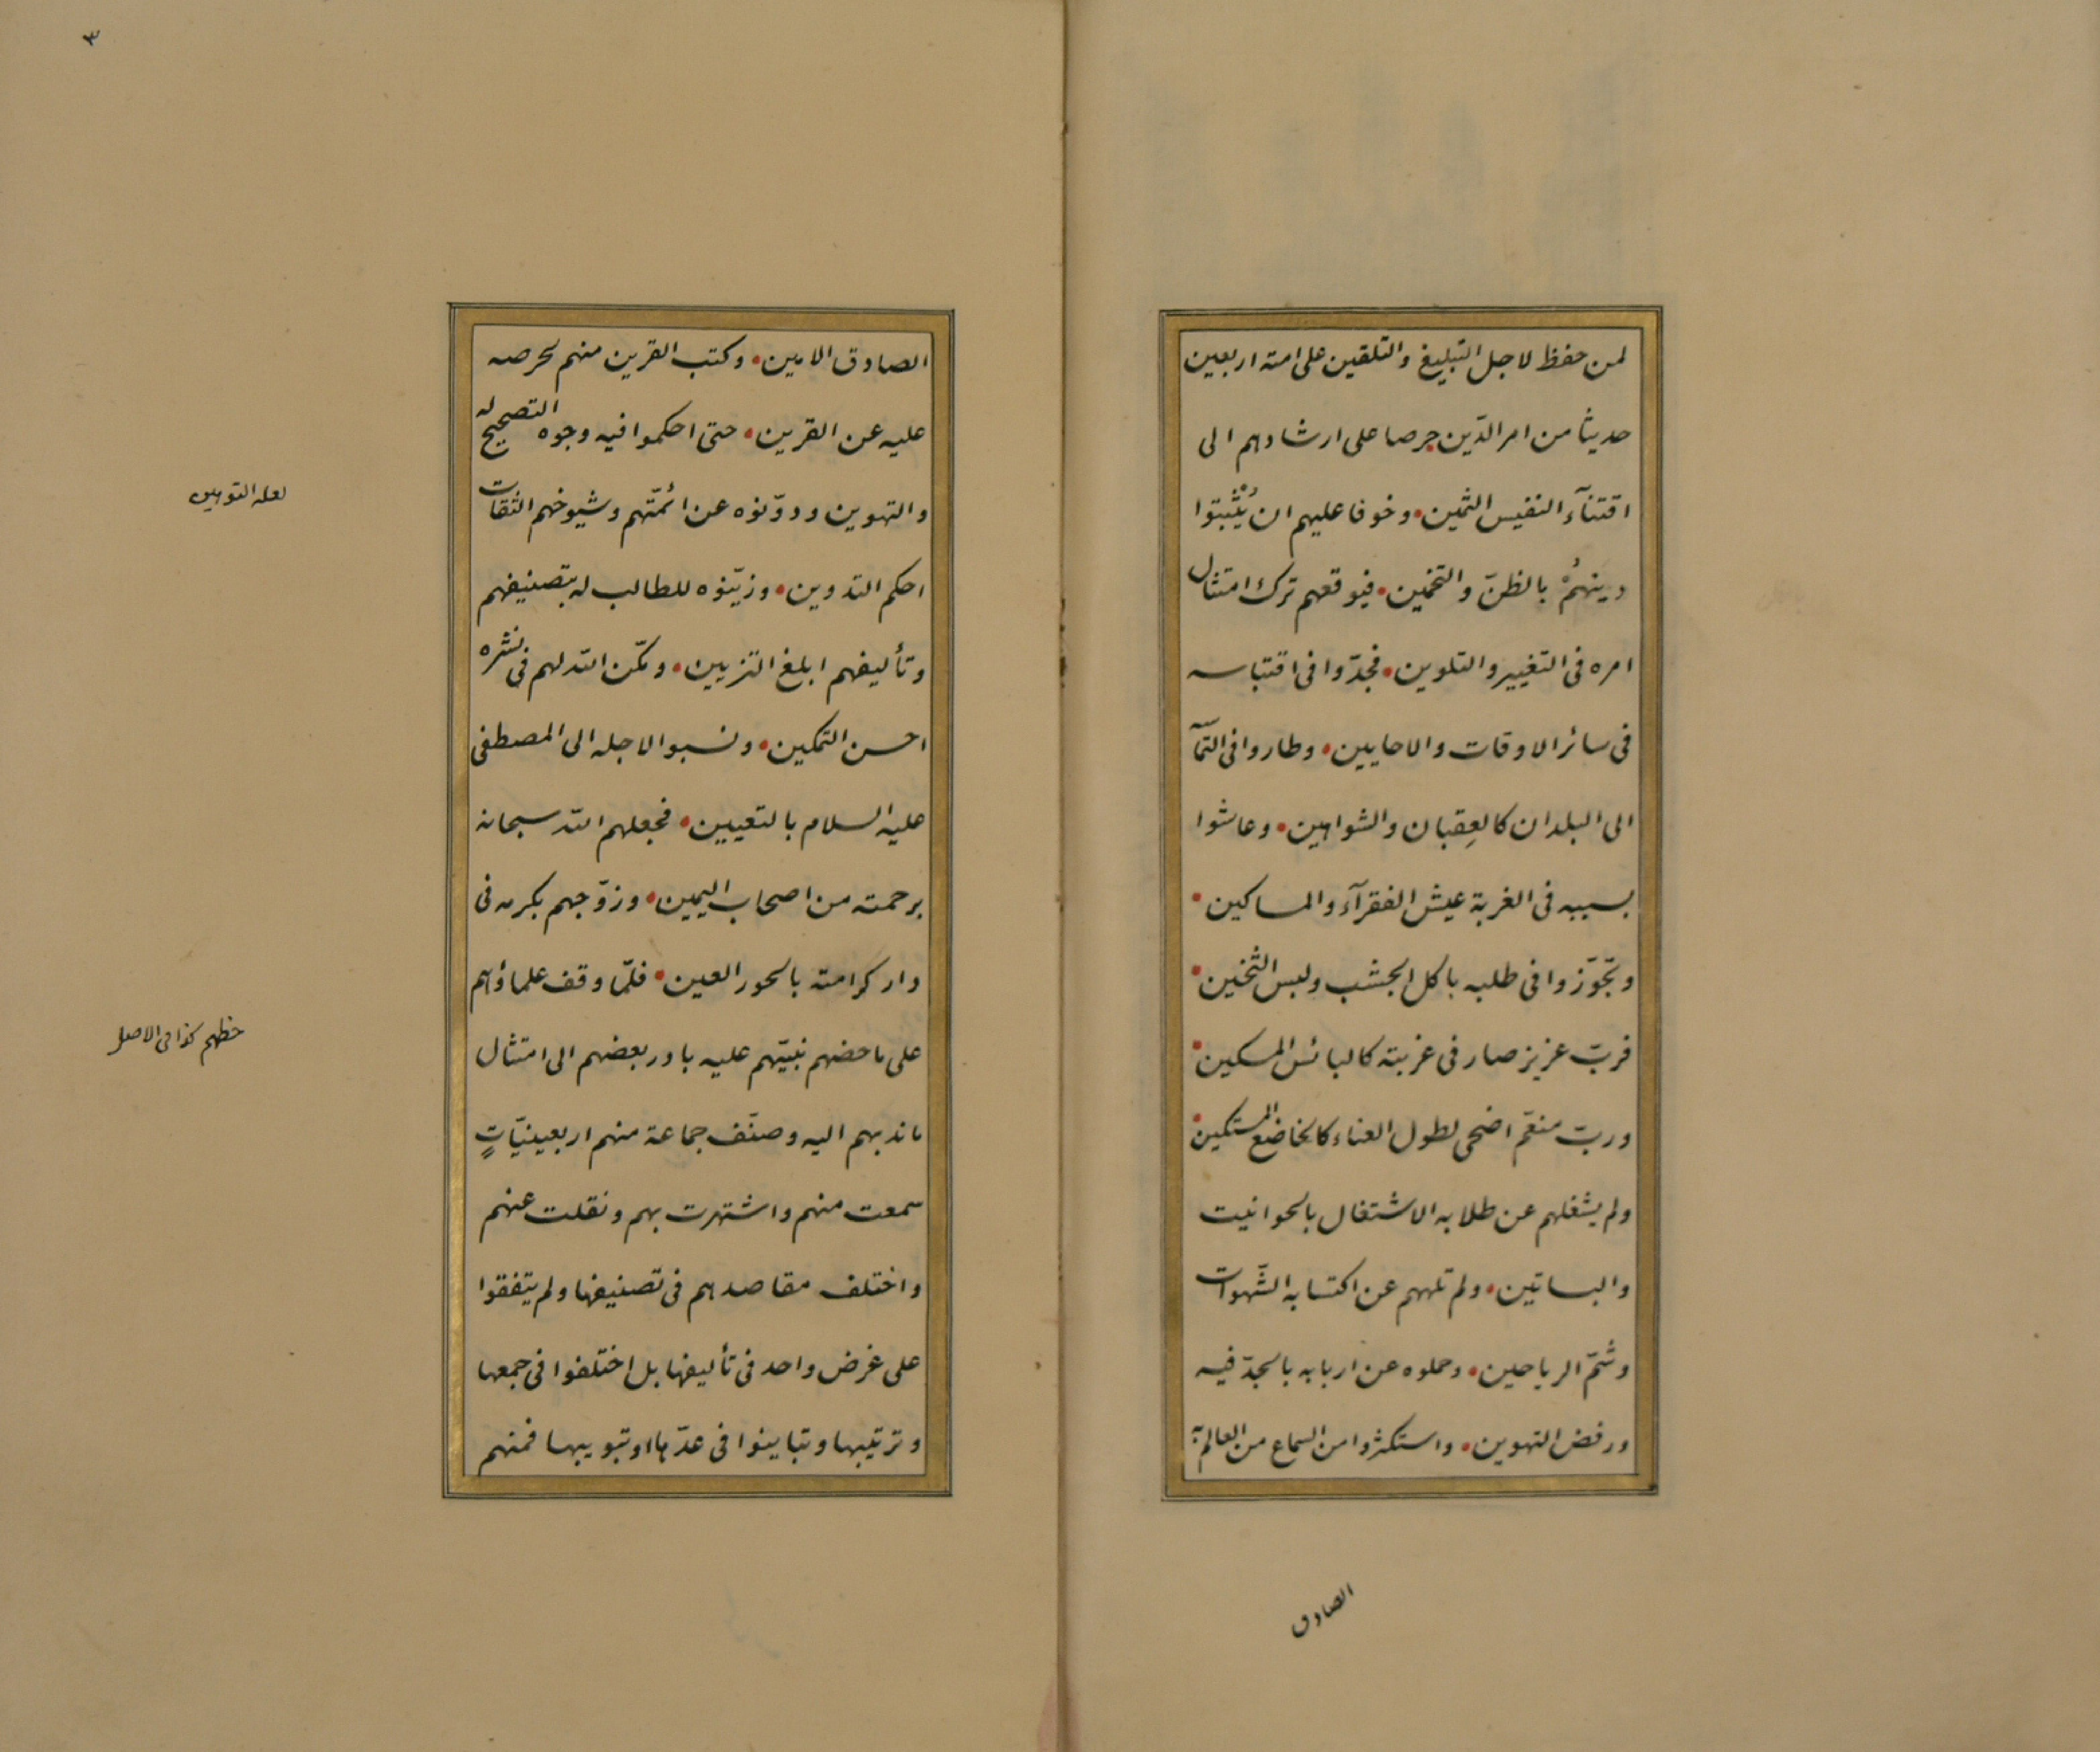 لمن حفظ لاجل التبليغ والتلقين على امته اربعين
حديثا من امر الدّين حرصا على ارشادهم الى
اقتنآء النفيس الثمين • وخوفا عليهم ان يُثْبِتوا
دينهُمْ بالظنّ والتخمين • فيوقعهم ترك امتثال
امره فى التغيير والتلوين • فجدّوا فى اقتباسه
فى سائر الاوقات والاحايين • وطاروا فى
الى البلدان كالعِقبان والشواهين • وعاشوا
بسببه فى الغربة عيش الفقرآء والمساكين •
وتجوّزوا فى طلبه باكل الجشب ولبس الثخين •
فربّ عزيز صار فى غربته كالبائس المسكين •
وربّ منعّم اضحى لطول العناء كالخاضع المستكين •
ولم يشغلهم عن طلابه الاشتغال بالحوانيت
والبساتين • ولم تلههم عن اكتسابه الشّهوات
وشمّ الرياحين • وحملوه عن اربابه بالجدّ فيه
ورفض التهوين • واستكثروا من السماع من العالم به
الصادق
٣
الصادق الامين • وكتب القرين منهم لحرصه
عليه عن القرين • حتى احكموا فيه وجوه التصحيح له
والتهوين ودوّنوه عن ائمّتهم وشيوخهم الثقات
احكم التدوين • وزيّنوه للطالب له بتصنيفهم
وتأليفهم ابلغ التزيين • ومكّن الله لهم فى نشره
احسن التمكين • ونسبوا لاجله الى المصطفى
عليه السلام بالتعيين • فجعلهم الله سبحانه
برحمته من اصحاب اليمين • وزوّجهم بكرمه فى
دار كرامته بالحور العين • فلمّا وقف علماؤهم
على ما حضهم نبيّهم عليه بادر بعضهم الى امتثال
ما ندبهم اليه وصنّف جماعة منهم اربعينيّاتٍ
سمعت منهم واشتهرت بهم ونقلت عنهم
واختلف مقاصدهم فى تصنيفها ولم يتفقوا
على غرض واحد فى تأليفها بل اختلفوا فى جمعها
وترتيبها وتباينوا فى عدّها او تبويبها فمنهم
لعله التوهين
حظهم كذا فى الاصل